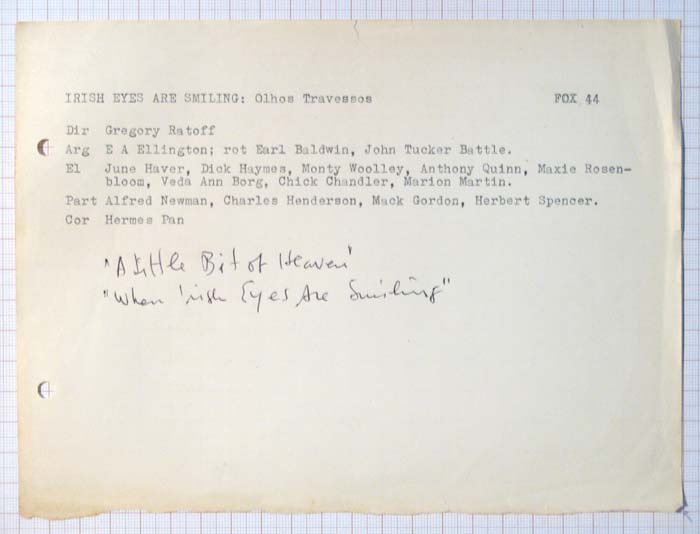 IRISH EYES ARE SMILING: Olhos Travessos FOX 44
Dir Gregory Ratoff
Arg E A Ellington; rot Earl Baldwin, John Tucker Battle.
El June Haver, Dick Haymes, Monty Woolley, Anthony Quinn, Maxie Rosen-
bloom, Veda Ann Borg, Chick Chandler, Marion Martin.
Part Alfred Newman, Charles Henderson, Mack Gordon, Herbert Spencer.
Cor Hermes Pan
"A Little Bit of Heaven"
"When Irish Eyes Are Smiling"